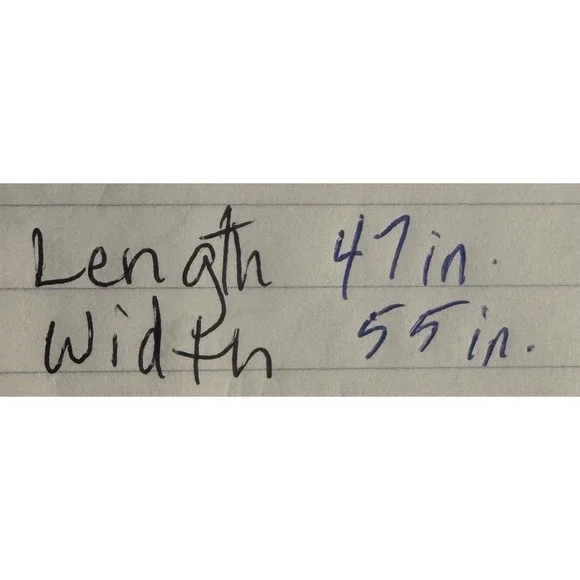 Length 47 in.
Width 55 in.